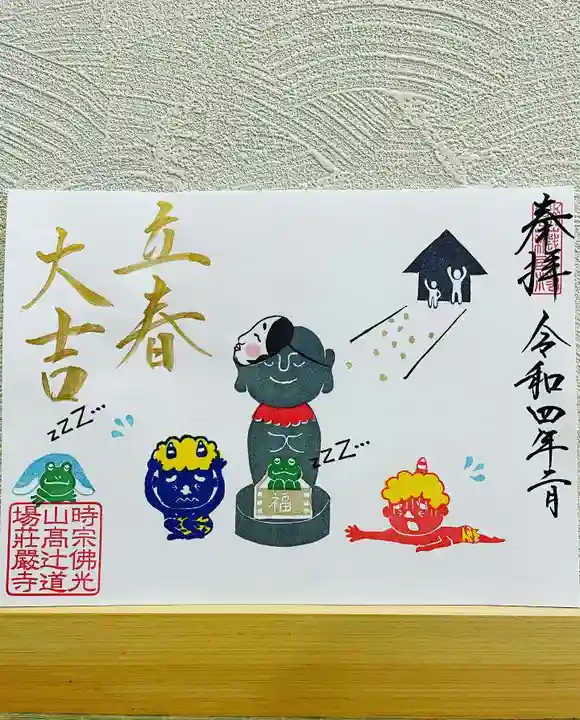 奉拝
令和四年二月
立春
大吉
zzz…
zzz…
福
時宗佛光
山髙辻道
場荘嚴寺